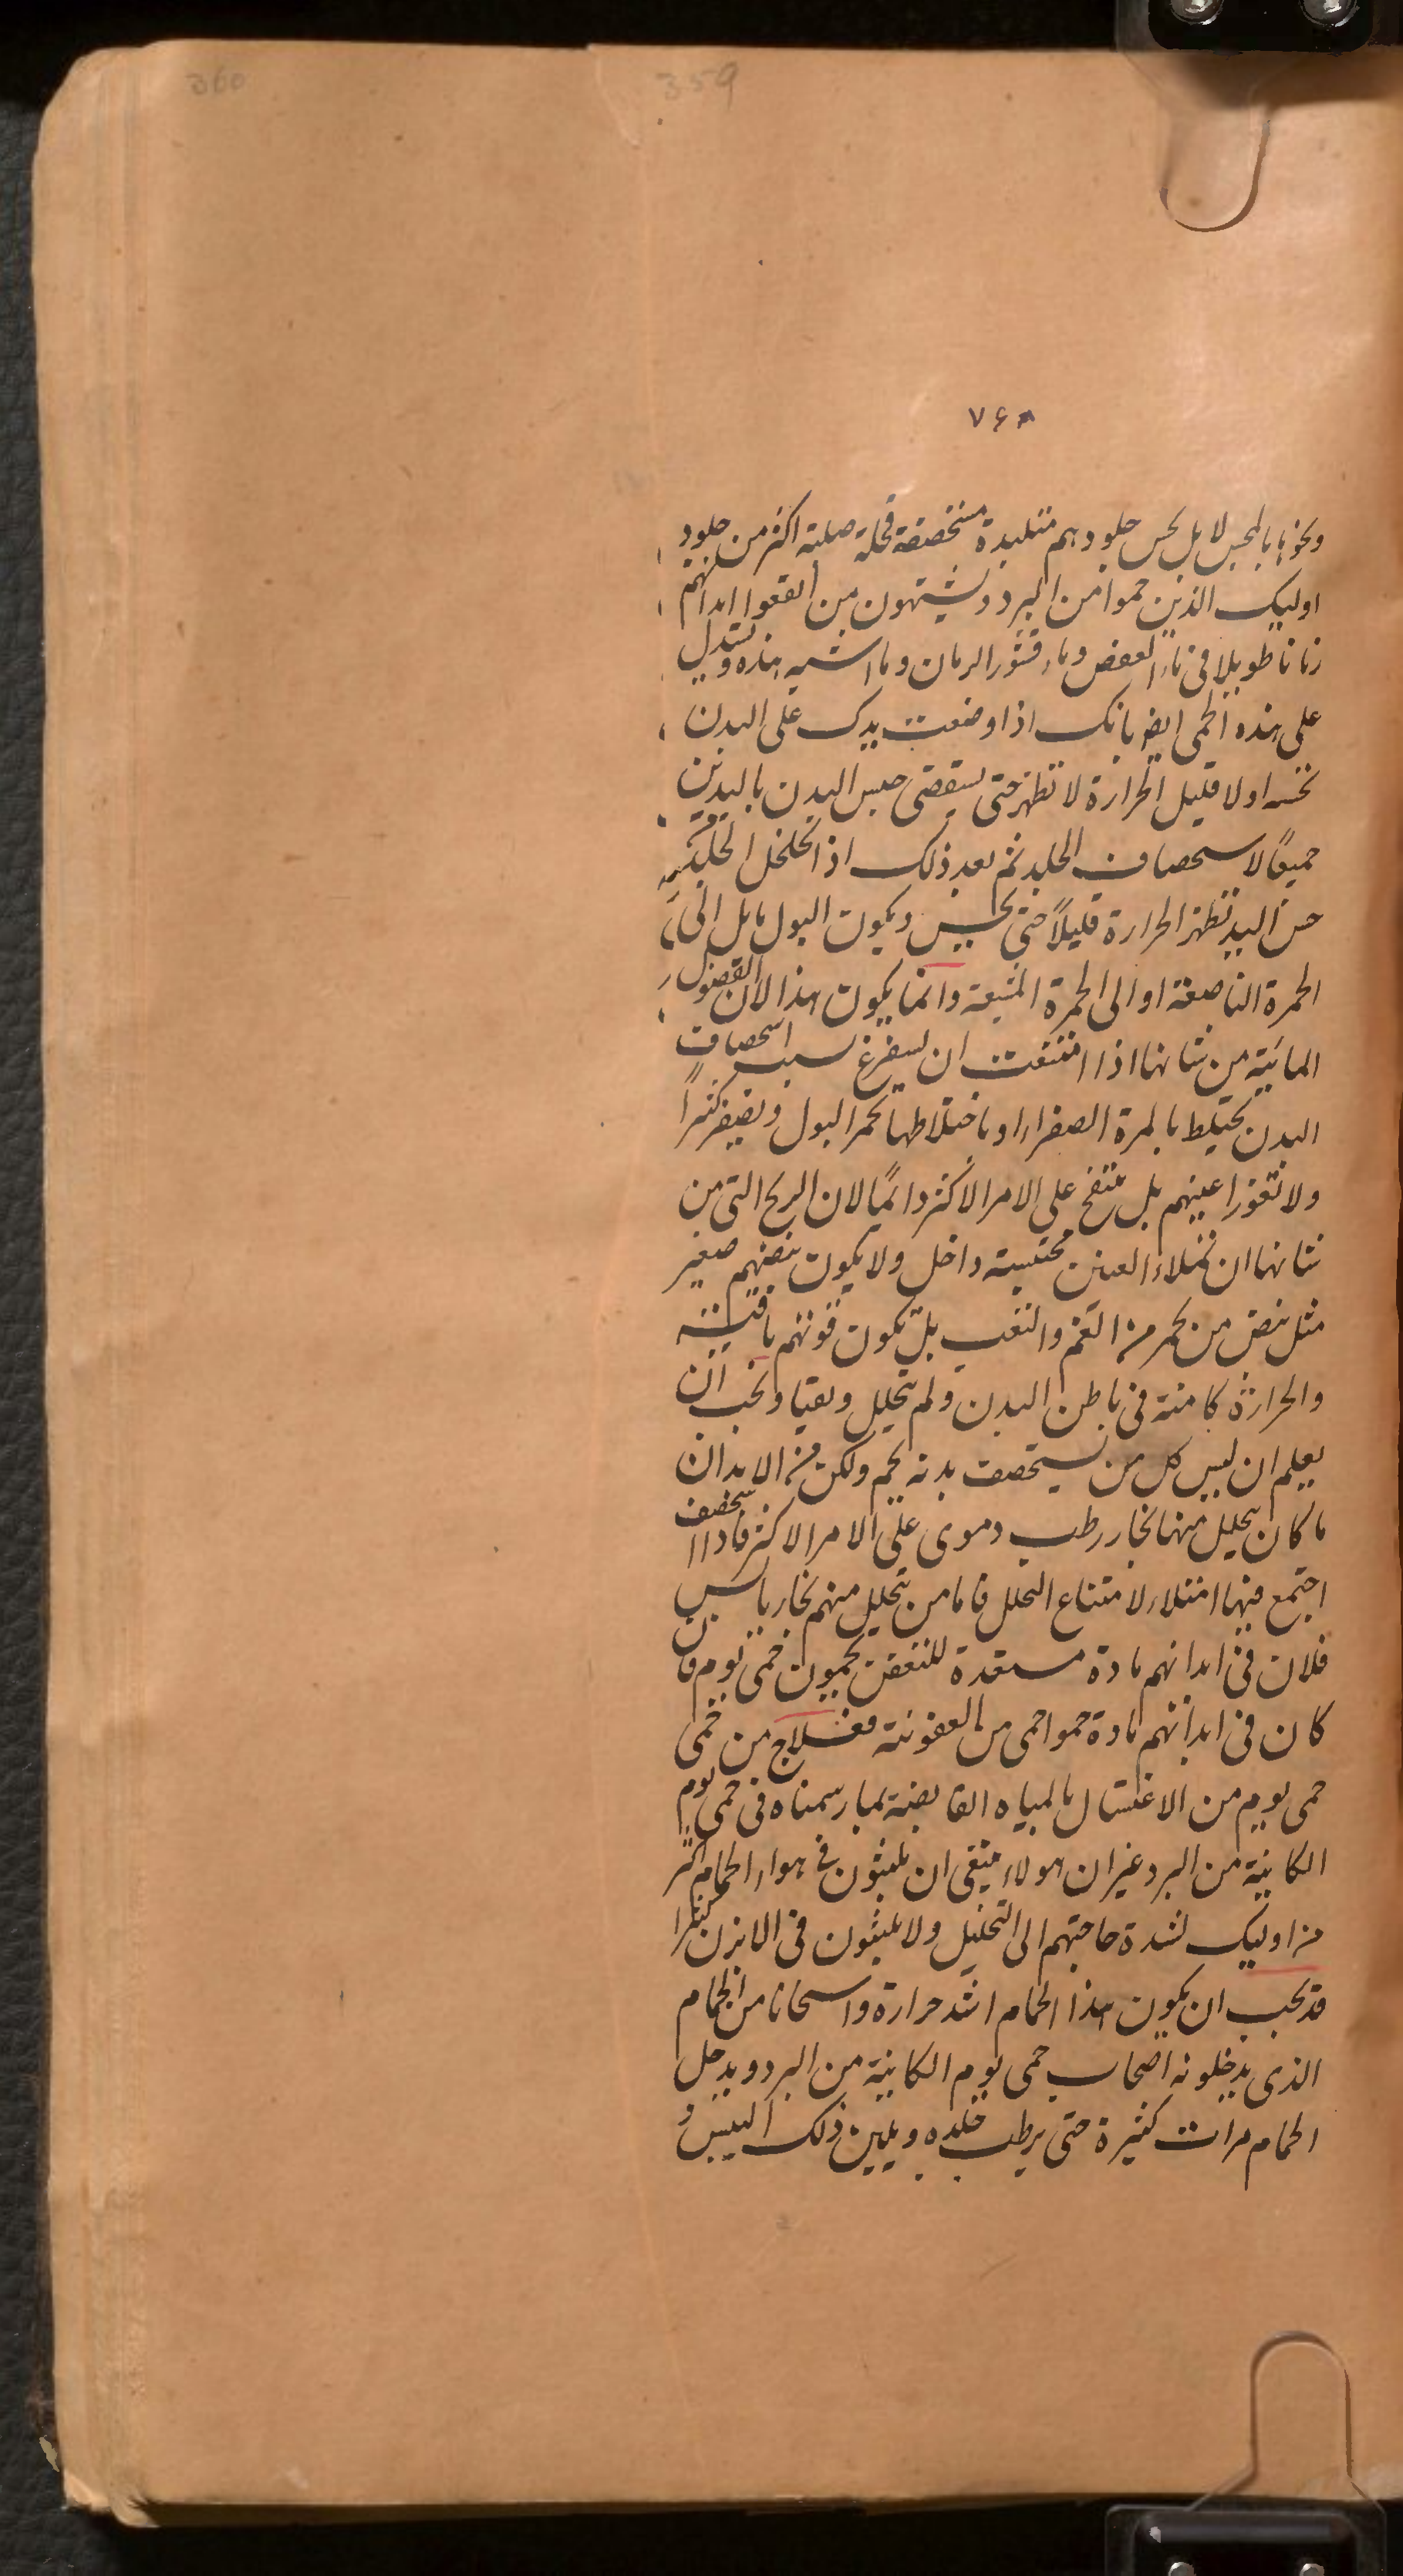 360
359
۷۶۸
ونحوها بالمجس لا بل يحس جلودهم متلبدة مستحصفة قحلة صلبة اكثر من جلود
اوليك الذين حموا من البرد ويشبهون من انقعوا ابدانهم
زمانا طويلا فى ماء العفص وماء قشور الرمان وما اشبه هذه ويستدل
على هذه الحمى ايضا بانك اذا وضعت يدك على البدن
تحسه اولا قليل الحرارة لا تظهر حتى يستقصى حبس البدن باليدين
جميعًا لاستحصاف الجلد ثم بعد ذلك اذا تخلخل الجلد
حس اليد تظهر الحرارة قليلاً حتى يحس ويكون البول مايل الى
الحمرة الناصعة او الى الحمرة المشبعة وانما يكون هذا لان الفضول
المائية من شانها اذا امتنعت ان يستفرغ بسبب استحصاف
البدن يختلط بالمرة الصفراء وباختلاطها يحمر البول ويصفر كثيراً
ولا تغور اعينهم بل تنتفخ على الامر الاكثر دائمًا لان الريح التى من
شانها ان تملاء العين محتبسة داخل ولا يكون نبضهم صغير
مثل نبض من يحم من الغم والتعب بل تكون قوتهم باقية
والحرارة كامنة فى باطن البدن ولم تتحلل ويجب ان
يعلم ان ليس كل من يستحصف بدنه يحم ولكن من الابدان
ما كان يتحلل منها بخار رطب دموى على الامر الاكثر فاذا استحصف
اجتمع فيها امتلاء لامتناع التحلل فاما من يتحلل منهم بخار يابس
فلان فى ابدانهم مادة مستعدة للتعفن يحمون حمى يوم فان
كان فى ابدانهم مادة حموا حمى من العفونة فعلاج من حمى
حمى يوم من الاغتسال بالمياه القابضة بما رسمناه فى حمى يوم
الكاينة من البرد غير ان هولاء ينبغى ان يلبثون فى هواء الحمام اكثر
من اوليك لشدة حاجتهم الى التحليل ولا يلبثون فى الابزن كثيرا
قد يجب ان يكون هذا الحمام اشد حرارة واسخانا من الحمام
الذى يدخلونه اصحاب حمى يوم الكاينة من البرد ويدخل
الحمام مرات كثيرة حتى يرطب جلده ويلين ذلك اليبس و